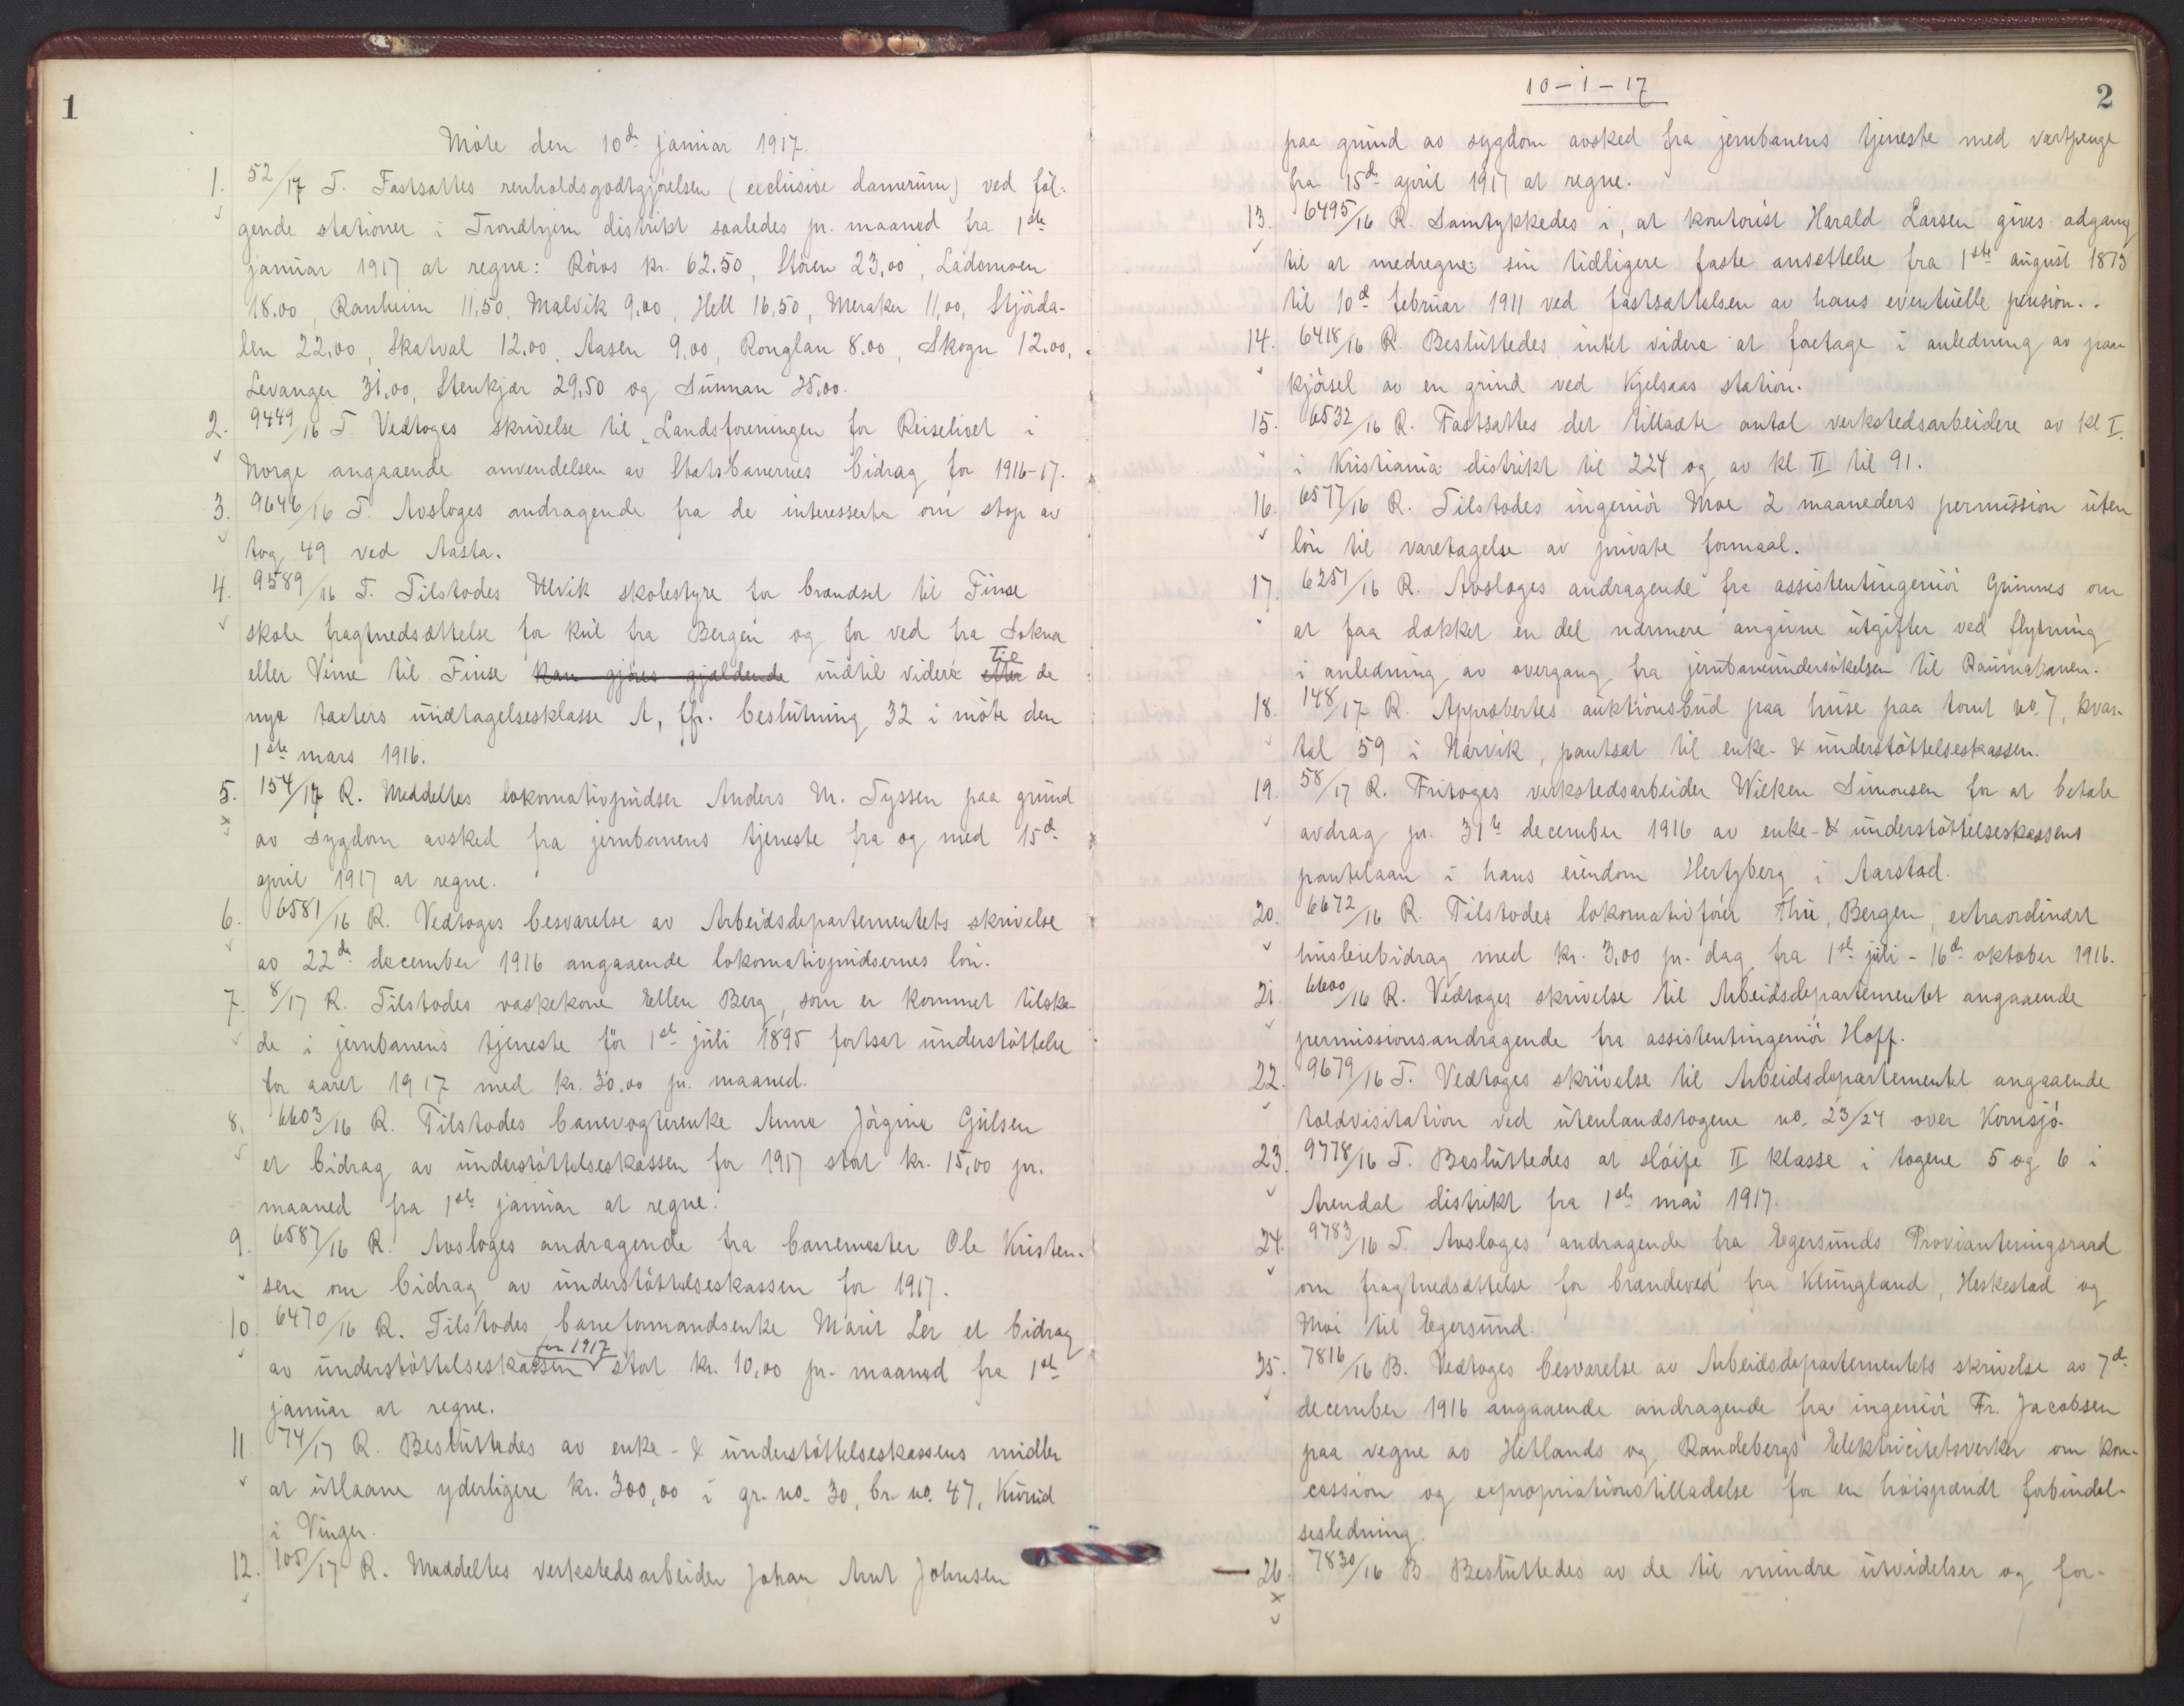 1
Møte den 10de januar 1917.
1. 52/17 T. Fastsattes renholdsgodtgjørelsen (exclusive damerum) ved føl-
gende stationer i Trondhjem distrikt saaledes pr. maaned fra 1ste
januar 1917 at regne: Røros kr. 62.50, Støren 23,00, Lådemoen
18.00, Ranheim 11,50, Malvik 9,00, Hell 16,50, Meraker 11,00, Stjørda-
len 22,00, Skatval 12.00, Aasen 9,00, Ronglan 8.00, Skogn 12.00,
Levanger 31,00, Stenkjær 29,50 og Sunnan 25,00.
2. 9449/16 T. Vedtoges skrivelse til "Landsforeningen for Reiselivet i
Norge angaaende anvendelsen av Statsbanernes bidrag for 1916-17.
3. 9646/16 T. Avsloges andragende fra de interesserte om stop av
tog 49 ved Aasta.
4. 9589/16 T. Tilstodes Ulvik skolestyre for brændsel til Finse
skole fragtnedsættelse for kul fra Bergen og for ved fra Sokna
eller Vinne til Finse kan gjøres gjældende indtil videre efter til de
nye taxters undtagelsesklasse A, jfr. beslutning 32 i møte den
1ste mars 1916.
5. 154/17 R. Meddeltes lokomotivpudser Anders M. Tyssen paa grund
av sygdom avsked fra jernbanens tjeneste fra og med 15de
april 1917 at regne.
6. 6581/16 R. Vedtoges besvarelse av Arbeidsdepartementets skrivelse
av 22de december 1916 angaaende lokomotivpudsernes løn.
7. 8/17 R. Tilstodes vaskekone Ellen Berg, som er kommet tilska-
de i jernbanens tjeneste før 1ste juli 1895 fortsat understøttelse
for aaret 1917 med kr. 30,00 pr. maaned.
8. 6603/16 R. Tilstodes banevogterenke Anne Jørgine Gulsen
et bidrag av understøttelseskassen for 1917 stort kr. 15,00 pr.
maaned fra 1ste januar at regne.
9. 6587/16 R. Avsloges andragende fra banemester Ole Kristen-
sen om bidrag av understøttelseskassen for 1917.
10. 6470/16 R. Tilstodes baneformandsenke Marit Ler et bidrag
av understøttelseskassen for 1917 stort kr. 10,00 pr. maaned fra 1ste
januar at regne.
11 74/17 R. Besluttedes av enke- & understøttelseskassens midler
at utlaane yderligere kr. 300,00 i gr. no. 30, br. no. 47,
i Vinger.
12. 105/17 R. Meddeltes verkstedsarbeider Johan Arnt Johnsen
10-1-17
2
paa grund av sygdom avsked fra jernbanens tjeneste med vartpenge
fra 15de april 1917 at regne.
13. 6495/16 R. Samtykkedes i, at kontorist Harald Larsen gives adgang
til at medregne sin tidligere faste ansettelse fra 1ste august 1873
til 10de februar 1911 ved fastsættelsen av hans eventuelle pension.
14. 6418/16 R. Besluttedes intet videre at foretage i anledning av paa-
kjørsel av en grind ved Kjelsaas station.
15. 6532/16 R. Fastsattes det tilladte antal verkstedsarbeidere av kl I
i Kristiania distrikt til 224 og av kl. II til 91.
16. 6577/16 R. Tilstodes ingeniør Moe 2 maaneders permission uten
løn til varetagelse av private formaal.
17. 6251/16 R. Avsloges andragende fra assistentingeniør Grimnes om
at faa dækket en del nærmere angivne utgifter ved flytning
i anledning av overgang fra jernbaneundersøkelsen til Raumabanen.
18. 148/17 R. Approbertes auktionsbud paa huse paa tomt no. 7, kvar-
tal 59 i Narvik, pantsat til enke- & understøttelseskassen.
19. 58/17 R. Fritoges verkstedsarbeider Wieken Simonsen for at betale
avdrag pr. 31te december 1916 av enke- & understøttelseskassens
pantelaan i hans eiendom Hertzberg i Aarstad.
20. 6672/16 R. Tilstodes lokomotivfører Thue, Bergen, extraordinært
husleiebidrag med kr. 3,00 pr. dag fra 1ste juli - 16de oktober 1916.
21. 6600/16 R. Vedtoges skrivelse til Arbeidsdepartementet angaaende
permissionsandragende fra assistentingeniør Hoff.
22. 9679/16 T. Vedtoges skrivelse til Arbeidsdepartementet angaaende
toldvisitation ved utenlandstogene no. 23/24 over Kornsjø.
23. 9778/16 T. Besluttedes at sløife II klasse i togene 5 og 6 i
Arendal distrikt fra 1ste mai 1917.
24. 9783/16 T. Avsloges andragende fra Egersunds Provianteringsraad
om fragtnedsættelse for brændeved fra Klungland, Heskestad og
Moi til Egersund.
25. 7816/16 B. Vedtoges besvarelse av Arbeidsdepartementets skrivelse av 7de
december 1916 angaaende andragende fra ingeniør Fr. Jacobsen
paa vegne av Hetlands og Randebergs Elektricitetsverker om kon-
cession og expropriationstilladelse for en høispændt forbindel-
sesledning.
26. 7830/16 B. Besluttedes av de til mindre utvidelser og for-